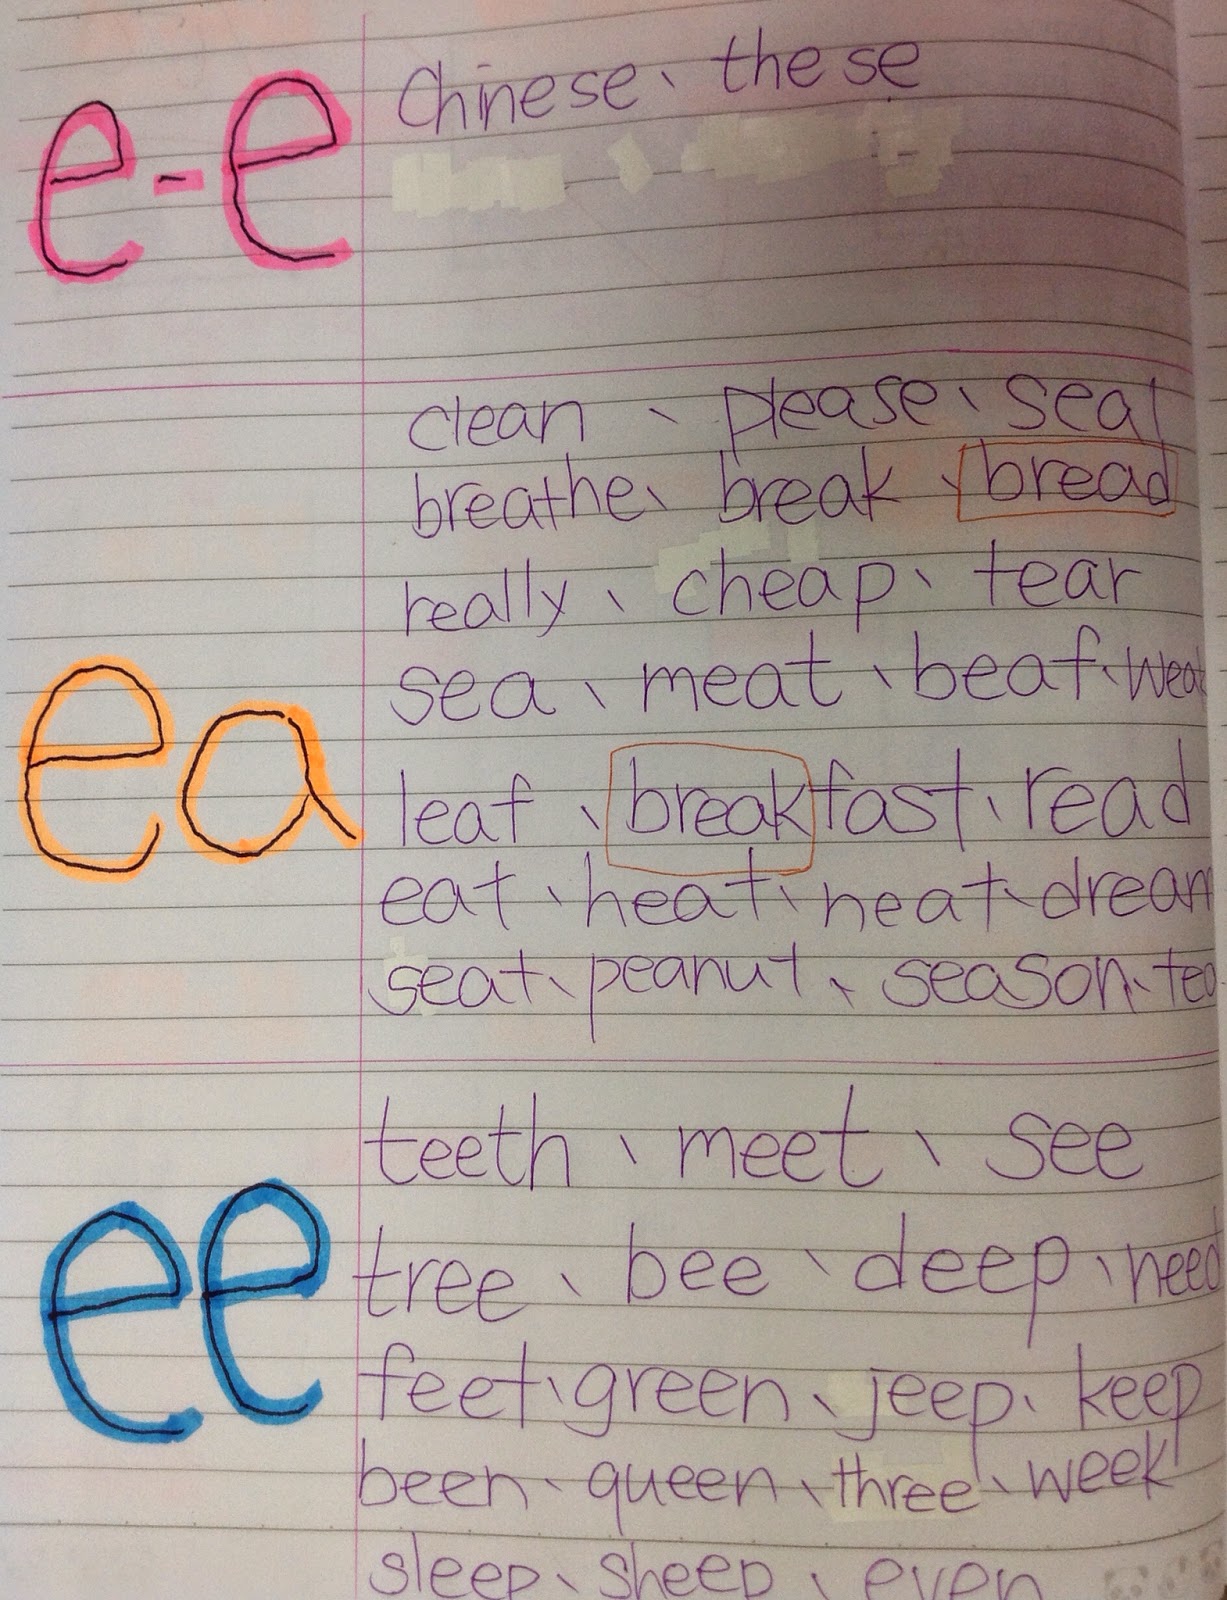 e-e
Chinese、these
ea
clean、please、seal
breathe、break、bread
really、cheap、tear
sea、meat、beaf、weat
leaf、breakfast、read
eat、heat、neat、dream
seat、peanut、season、tea
ee
teeth、meet、see
tree、bee、deep、need
feet、green、jeep、keep
been、queen、three、week
sleep、sheep、even